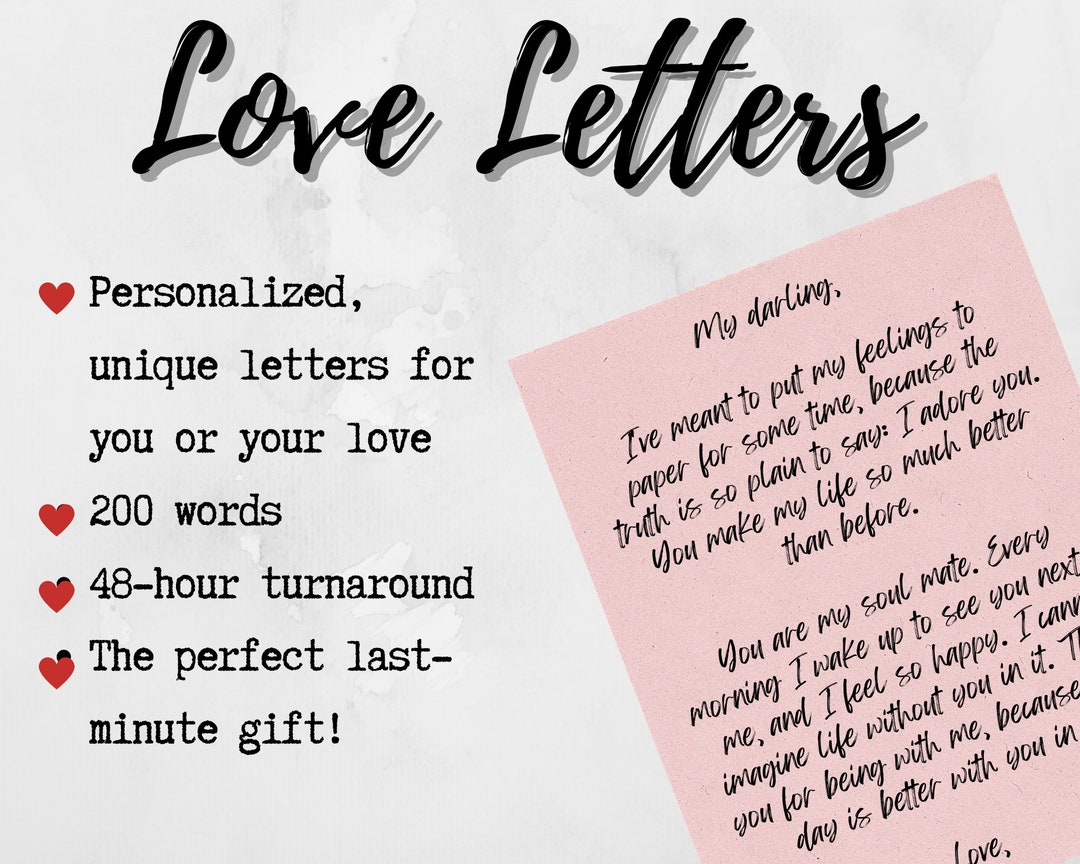 Love Letters
Personalized,
unique letters for
you or your love
200 words
48-hour turnaround
The perfect last-
minute gift!
My darling,
I've meant to put my feelings to
paper for some time, because the
truth is so plain to say: I adore you.
You make my life so much better
than before.
You are my soul mate. Every
morning I wake up to see you next
me, and I feel so happy. I
imagine life without you in it.
you for being with me, because
day is better with you in
Love,